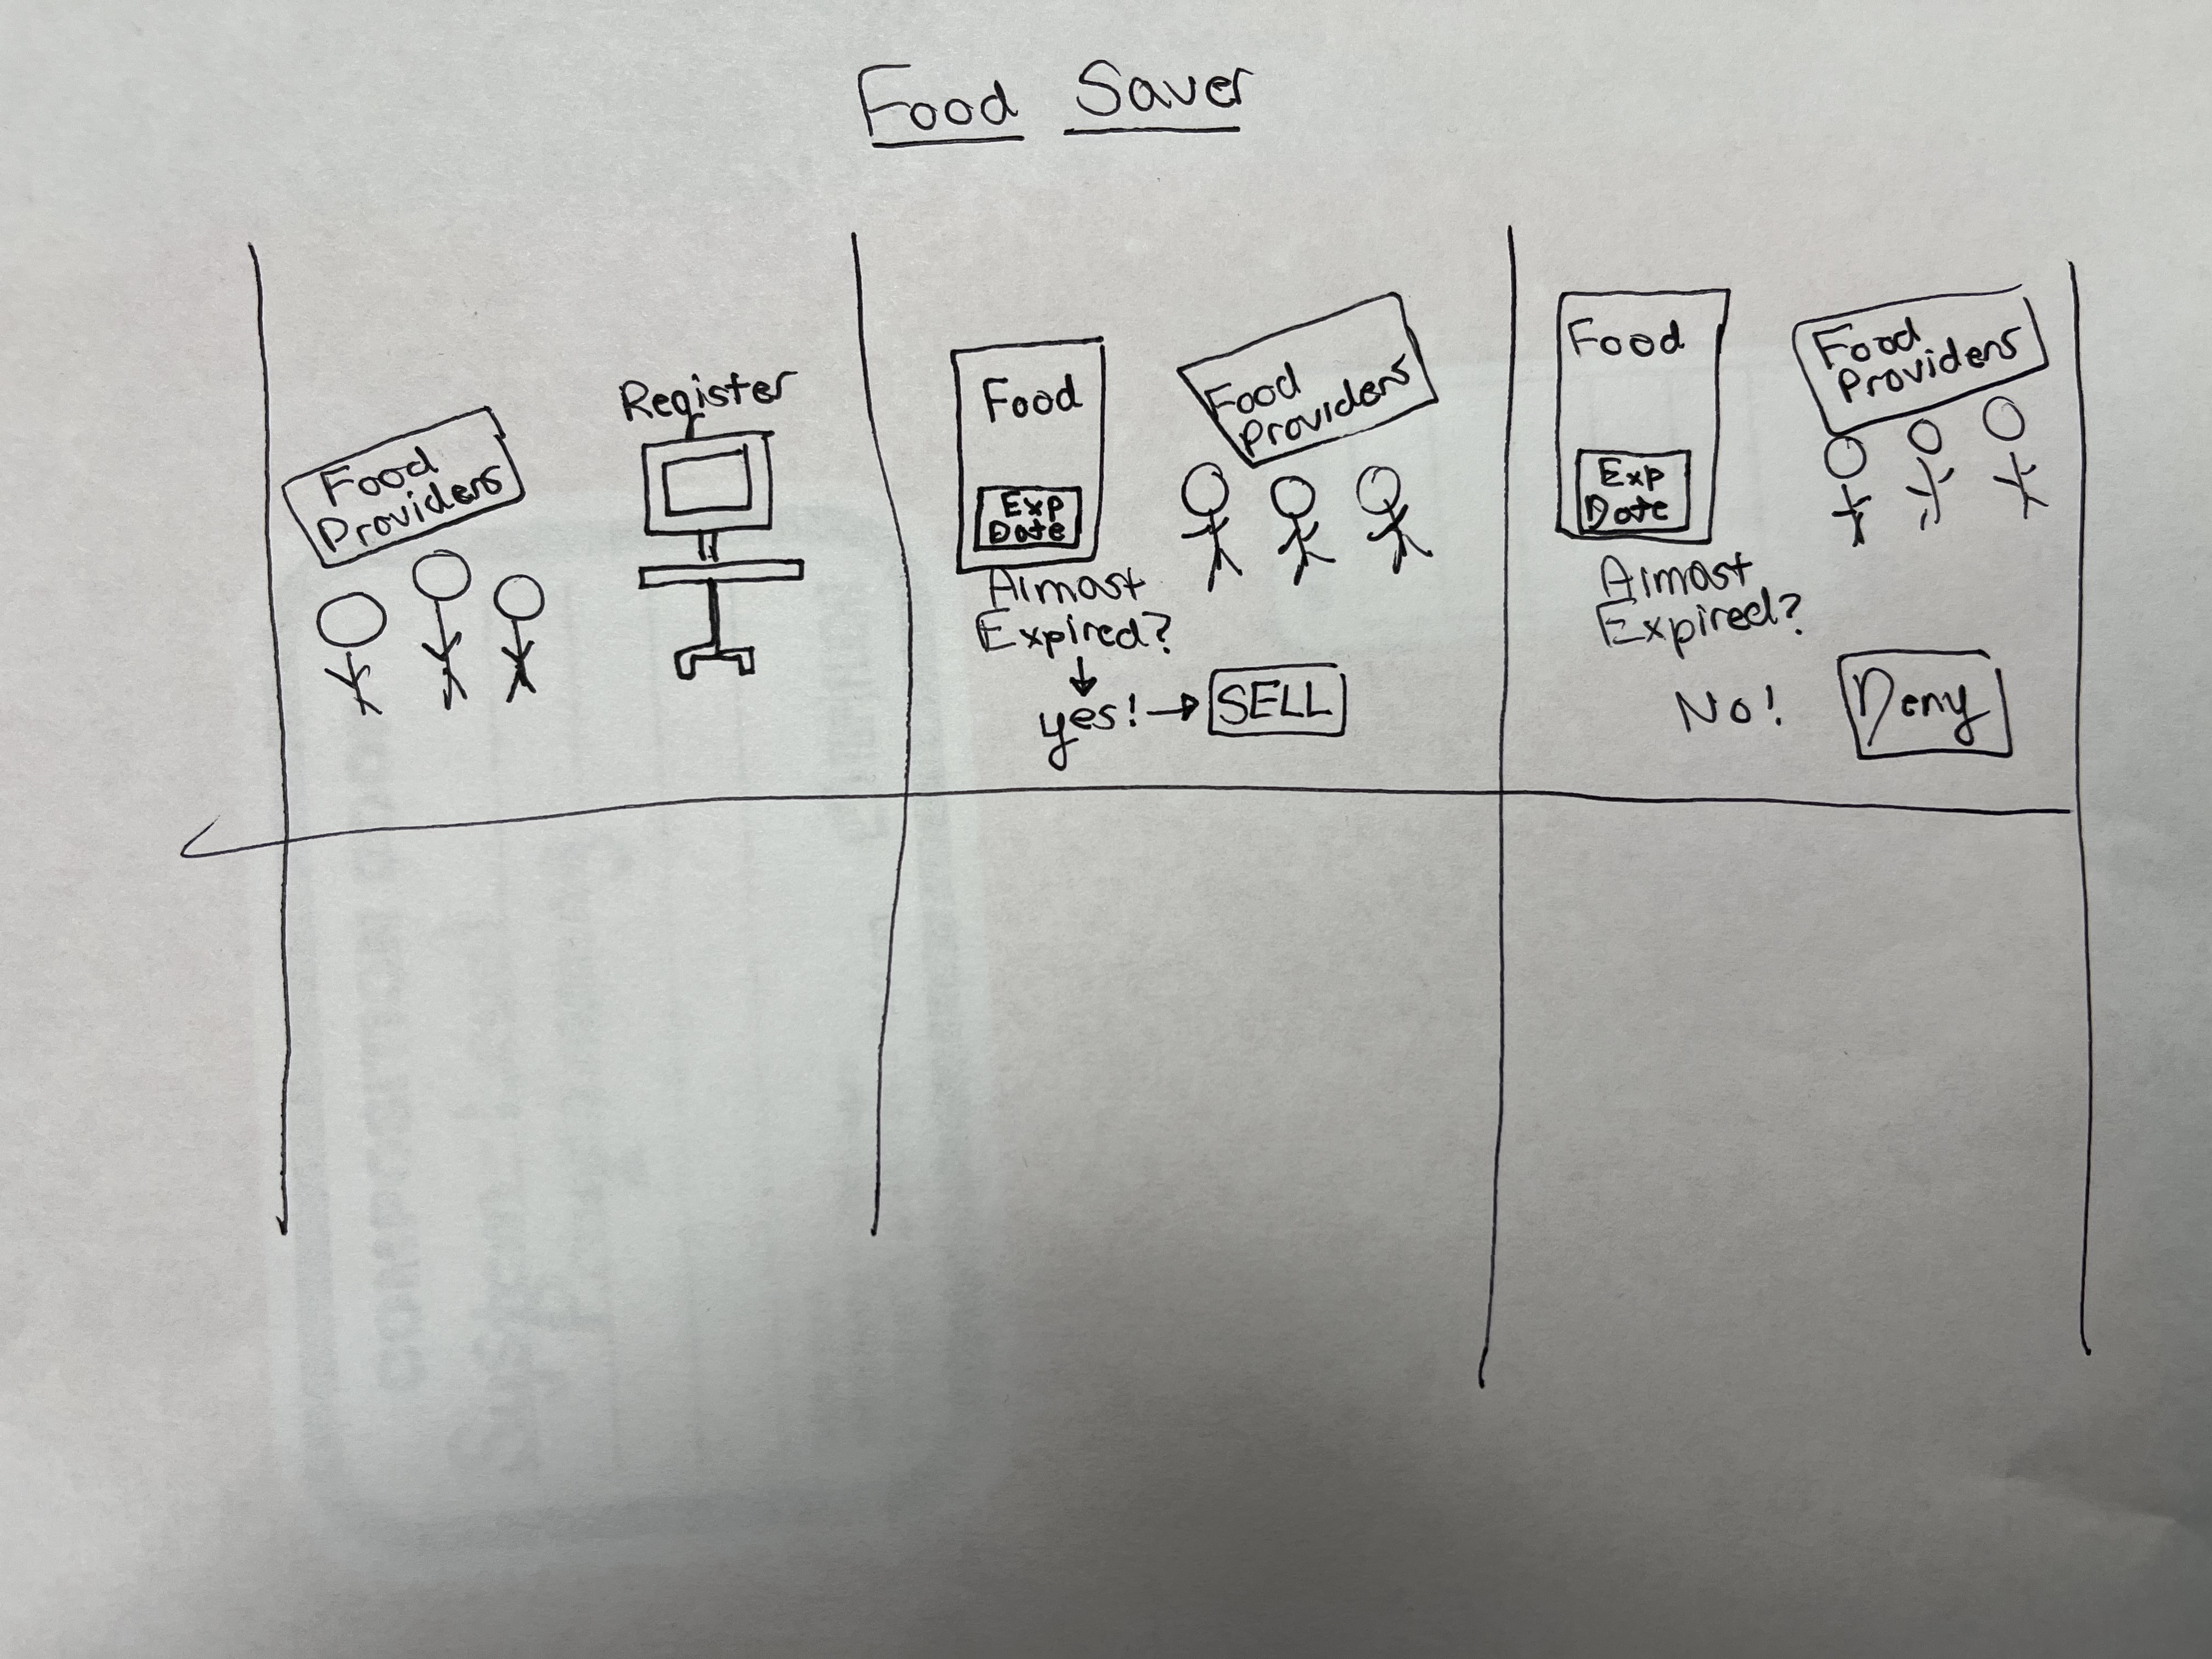 Food Saver
Food
Providers
Register
Food
Exp
Date
Almost
Expired?
yes!
SELL
Food
providers
Food
Exp
Date
Almost
Expired?
No!
Deny
Food
providers